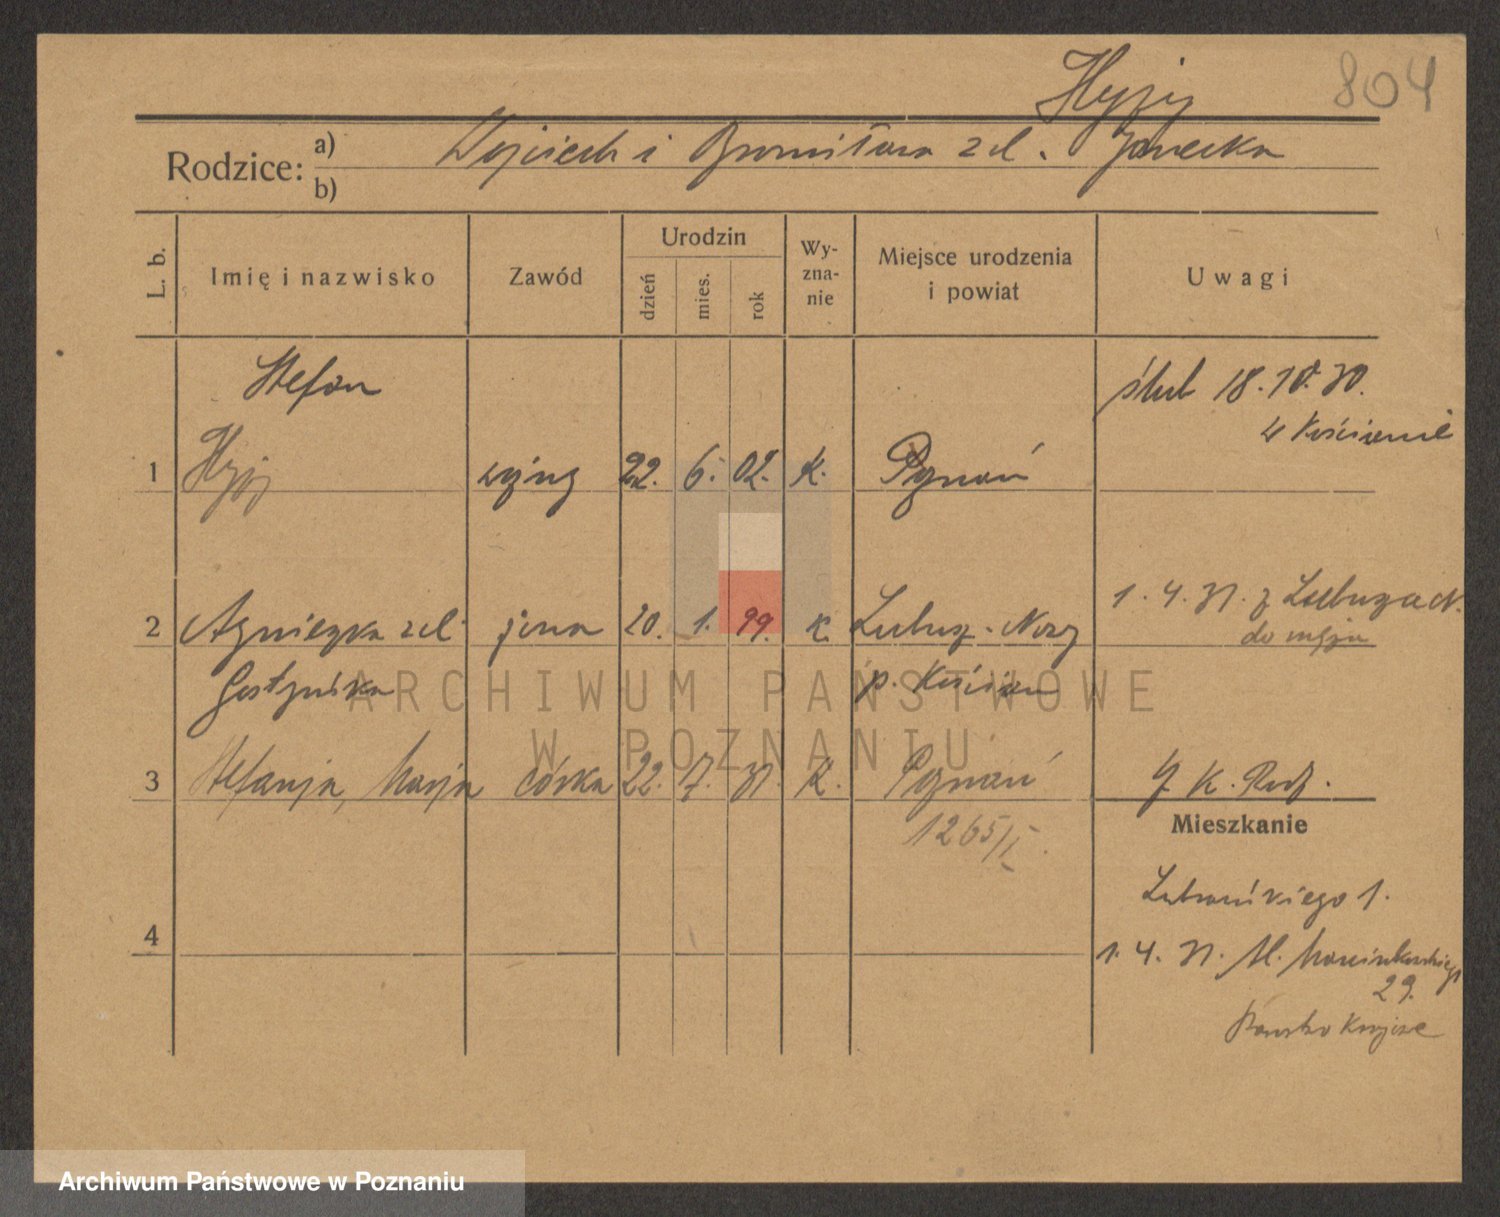 Hyży 804
Rodzice: a) Wojciech i Bronisława zd. Janecka
b)
L. b. Imię i nazwisko Zawód Urodzin dzień mies. rok Wy-zna-nie Miejsce urodzenia i powiat Uwagi
Stefan ślub 18.10.30.
w Kościanie
1 Hyży 22. 6. 02. K. Poznań
2 Agnieszka zd. żona 20. 1. 99. K. Lubusz-Nowy 1.4.31. z
do męża
Gostyńska p. Kościan
3 Stefanja, Marja córka 22. 7. 31. K. Poznań
1265/I.
Mieszkanie
Lubrańskiego 1.
4
1.4.31. Al. Marcinkowskiego
29.
ARCHIWUM PAŃSTWOWE
W POZNANIU
Archiwum Państwowe w Poznaniu